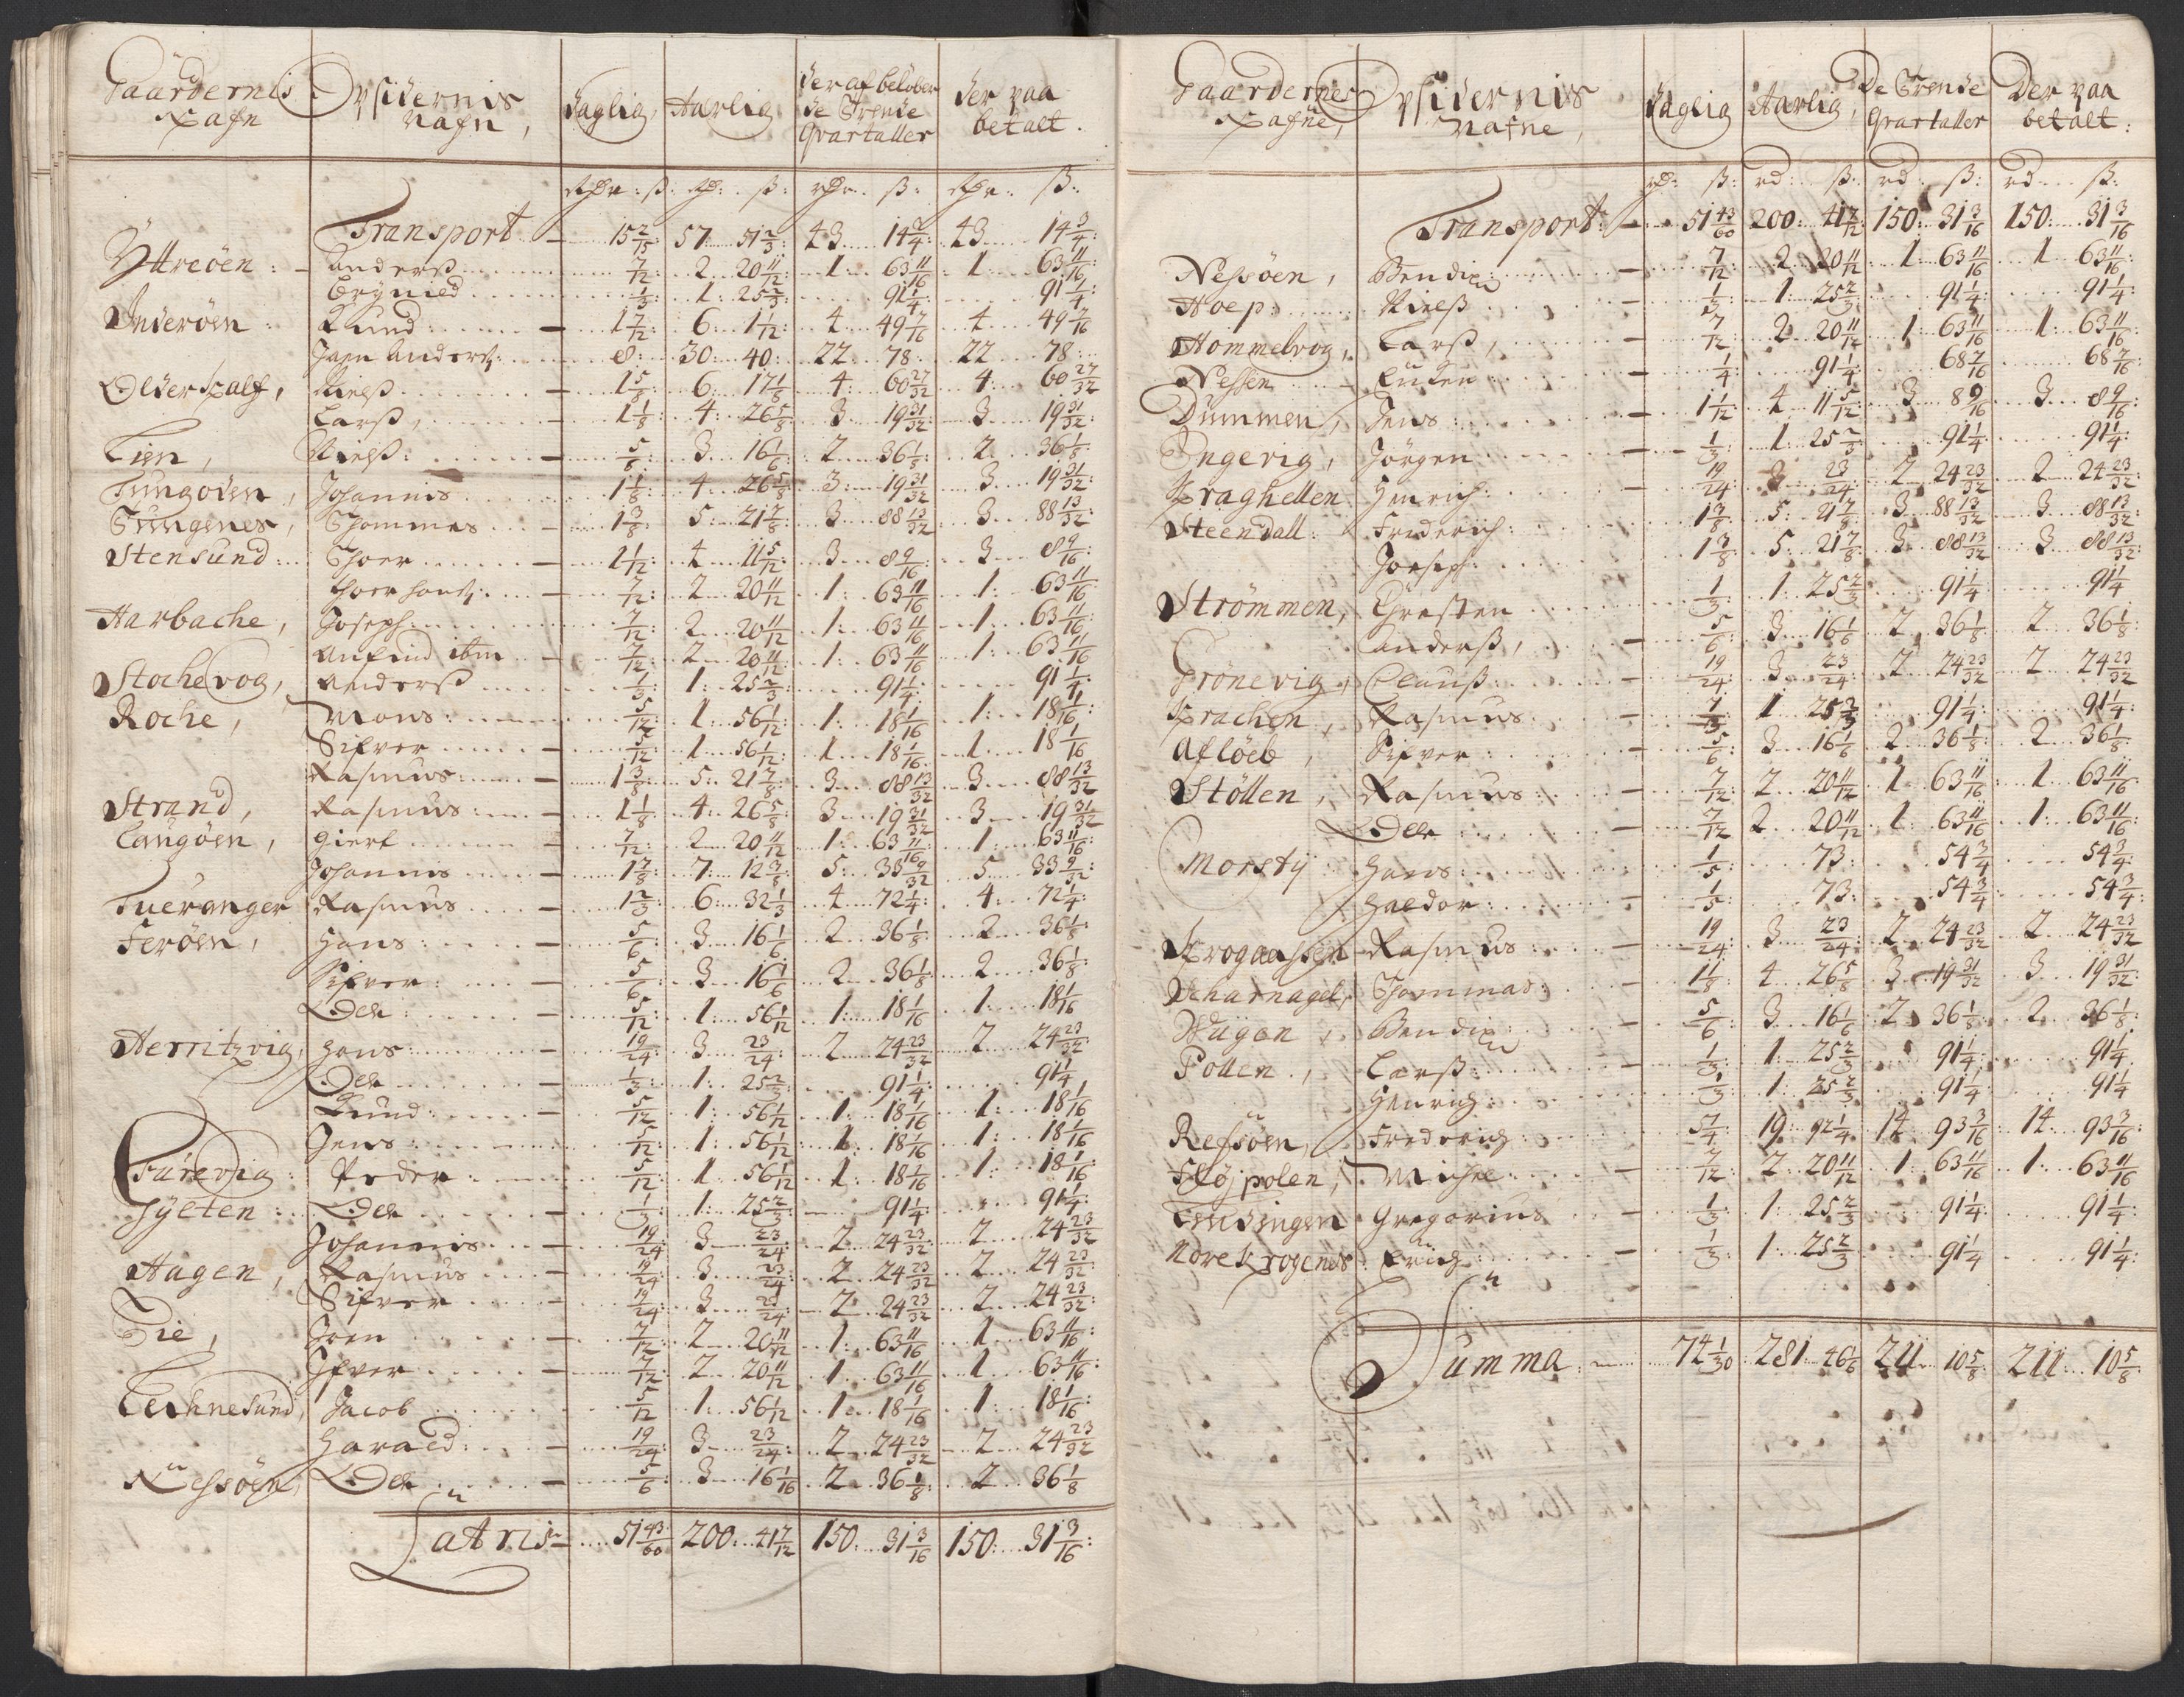 Gaardernis Nafn | Opsidernis Nafn, | Daglig, | Aarlig | Der af beløber de Trende Qvartaller | Der paa betalt.
Rdr: ß: | rd: ß: | rdr: ß: | Rdr: ß:
Transport — 15 2/15 | 57 51 2/3 | 43 14 3/4 | 43 14 3/4
Yttreöen: Anderß — 7/12 | 2 20 11/12 | 1: 63 11/16 | 1 63 11/16
Brynild — 1/3 | 1: 25 2/3 | 91 1/4 | 91 1/4
Inderöen: Knud — 1 7/12 | 6: 1 1/12 | 4 49 7/16 | 4 49 7/16
Jaen Anderß: 8: | 30: 40: | 22: 78: | 22 78:
Older Kalf, Nielß — 1 5/8 | 6: 17 1/8 | 4: 60 27/32 | 4: 60 27/32
Larß, — 1 1/8 | 4: 26 5/8 | 3 19 31/32 | 3 19 31/32
Lien, Nielß: — 5/8 | 3 16 1/6 | 2 36 1/8 | 2 36 1/8
Tungoden, Johannis — 1 1/8 | 4: 26 5/8 | 3: 19 31/32 | 3 19 31/32
Tungenes, Thommes — 1 3/8 | 5: 21 7/8 | 3 88 13/32 | 3 88 13/32
Stensund: Thoer — 1 1/12 | 4 11 5/12 | 3 8 9/16 | 3 8 9/16
Thoer — 7/12 | 2 20 11/12 | 1: 63 11/16 | 1: 63 11/16
Harbache, Joseph: 7/12 | 2 20 11/12 | 1: 63 11/16 | 1: 63 11/16
Anfind ibm — 7/12 | 2 20 11/12 | 1: 63 11/16 | 1: 63 11/16
Stochevog, Anderß 1/3 | 1: 25 2/3 | 91 1/4 | 91 1/4
Roche, Mons: 5/12 | 1 56 1/12 | 1: 18 1/16 | 1: 18 1/16
Sifver 5/12 | 1 56 1/12 | 1 18 1/16 | 1 18 1/16
Rasmus: 1 3/8 | 5: 21 7/8 | 3 88 13/32 | 3 88 13/32
Strand, Rasmus: — 1 1/8 | 4: 26 5/8 | 3 19 31/32 | 3 19 31/32
Langöen, Giert — 7/12 | 2 20 11/12 | 1: 63 11/16 | 1: 63 11/16
Johannis 1 7/8 | 7: 12 3/8 | 5: 33 9/32 | 5 33 9/32
Tueranger Rasmus — 1 2/3 | 6: 32 1/3 | 4 72 1/4 | 4: 72 1/4
Feröen, Hans: — 5/6 | 3 16 1/6 | 2 36 1/8 | 2 36 1/8
Sifver: — 5/6 | 3 16 1/6 | 2 36 1/8 | 2 36 1/8
Ole: — 5/12 | 1: 56 1/12 | 1: 18 1/16 | 1 18 1/16
Herritzvig, Hans: 19/24 | 3 23/24 | 2 24 23/32 | 2 24 23/32
Ole — 1/3 | 1: 25 2/3 | 91 1/4 | 91 1/4
Knud: — 5/12 | 1: 56 1/12 | 1: 18 1/16 | 1: 18 1/16
Jens: 5/12 | 1: 56 1/12 | 1: 18 1/16 | 1: 18 1/16
Furevig: Peder 5/12 | 1 56 1/12 | 1 18 1/16 | 1: 18 1/16
Sylten: Ole 1/3 | 1: 25 2/3 | 91 1/4 | 91 1/4
Johannis — 19/24 | 3 23/24 | 2 24 23/32 | 2 24 23/32
Hagen, Rasmus — 19/24 | 3 23/24 | 2 24 23/32 | 2 24 23/32
Sifver — 19/24 | 3 23/24 | 2 24 23/32 | 2 24 23/32
Die, Joen — 7/12 | 2 20 11/12 | 1: 63 11/16 | 1 63 11/16
Ifver — 7/12 | 2 20 11/12 | 1 63 11/16 | 1 63 11/16
Lechnesund, Jacob 5/12 | 1: 56 1/12 | 1 18 1/16 | 1: 18 1/16
Harald: — 19/24 | 3 23/24 | 2 24 23/32 | 2 24 23/32
Nessöen, Ole — 5/6 | 3 16 1/16 | 2 36 1/8 | 2 36 1/8
Latris — 51 43/60 | 200: 41 7/12 | 150: 31 3/16 | 150: 31 3/16
Gaardernes Nafne, | Opsidernis Nafne, | Daglig | Aarlig, | De Trende Qvartaller | Der paa betalt:
rd: ß: | rd: ß: | rd: ß: | rd ß:
Transport: — 51 43/60 | 200: 41 7/12 | 150: 31 3/16 | 150: 31 3/16
Nessöen, Bendix: — 7/12 | 2 20 11/12 | 1 63 11/16 | 1 63 11/16
Hoep: Nielß — 1/3 | 1: 25 2/3 | 91 1/4 | 91 1/4
Hommelvog, Larß, — 7/12 | 2 20 11/12 | 1: 63 11/16 | 1: 63 11/16
Nessen — 1/4 | 91 1/4 | 68 7/16 | 68 7/16
Dummen, Jens: — 1 1/12 | 4 11 5/12 | 3 8 9/16 | 3 8 9/16
Ingevig, Jörgen — 1/3 | 1: 25 2/3 | 91 1/4 | 91 1/4
Kraghellen Hinrich: — 19/24 | 3 23/24 | 2 24 23/32 | 2 24 23/32
Steendall: Friderich: 1 3/8 | 5: 21 7/8 | 3 88 13/32 | 3 88 13/32
Joesep: 1 3/8 | 5 21 7/8 | 3 88 13/32 | 3 88 13/32
Strömmen, Chresten 1/3 | 1: 25 2/3 | 91 1/4 | 91 1/4
Anderß, — 5/6 | 3 16 1/6 | 2 36 1/8 | 2 36 1/8
Grönevig, Clauß: 19/24 | 3 23/24 | 2 24 23/32 | 2 24 23/32
Krachen, Rasmus: — 1/3 | 1 25 2/3 | 91 1/4 | 91 1/4
Aflöeb, Sifver: — 5/6 | 3 16 1/6 | 2 36 1/8 | 2 36 1/8
Stöllen, Rasmus: — 7/12 | 2 20 11/12 | 1 63 11/16 | 1 63 11/16
Ole — 7/12 | 2 20 11/12 | 1 63 11/16 | 1: 63 11/16
Morsty Hans: 1/5 | 73: | 54 3/4 | 54 3/4
Haldor: — 1/5 | 73: | 54 3/4 | 54 3/4
Krogaassen Rasmus — 19/24 | 3 23/24 | 2 24 23/32 | 2 24 23/32
Scharnagel, Thommas: — 1 1/8 | 4 26 5/8 | 3 19 31/32 | 3 19 31/32
Wågen, Bendix: — 5/6 | 3 16 1/6 | 2 36 1/8 | 2 36 1/8
Pollen, Larß: 1/3 | 1: 25 2/3 | 91 1/4 | 91 1/4
Henrich: 1/3 | 1: 25 2/3 | 91 1/4 | 91 1/4
Refsöen, Frederich: 5 1/4 | 19 92 1/4 | 14 93 3/16 | 14: 93 3/16
Flöjpolen, Michel: — 7/12 | 2 20 11/12 | 1: 63 11/16 | 1: 63 11/16
Gregorius — 1/3 | 1: 25 2/3 | 91 1/4 | 91 1/4
Nore Krogenes Erich: — 1/3 | 1: 25 2/3 | 91 1/4 | 91 1/4
Summa: 74 1/30 | 281 46 1/6 | 211 10 5/8 | 211: 10 5/8